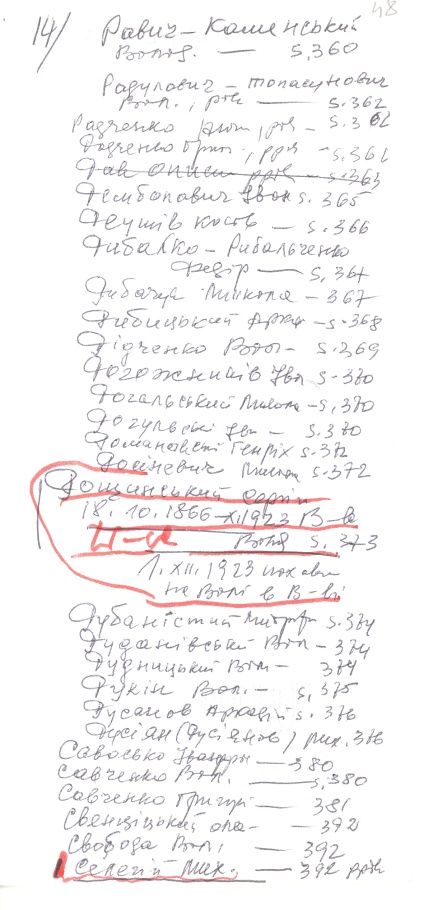 48
14/ Равич-Каменський
Волод. — S. 360
Радулович-
Вол., ррк — S. 362
Радченко Ант., ррк — S. 362
Радченко Григ., ррк — S. 362
ррк — S. 363
Рембалович Іван S. 365
Реутів Костя — S. 366
Рибалко-Рибальченко
Федір — S. 367
Рибачук Микола — 367
Рибицький — S. 368
Рідченко Вол. — S. 369
Рогожинців Ів. S. 370
Рогальський Микола — S. 370
Рогульські Ів. — S. 370
Романовскі Генріх S. 372
Росіневич Микола S. 372
Рощинський Сергій
18. 10. 1866 - XI. 1923 В-ві
Ш-ск Волод S. 373
1. XII. 1923 поховані
на Волі в В-ві
Рубаністий Митроф. S. 374
Рудановський Вол — 374
Рудницький Вол — 374
Рукін Вол. — S. 375
Русанов Аркадій S. 376
Русіян (Русіянов) Мих. 376
Савосько — 380
Савченко Вол. — S. 380
Савченко Григорі — 381
Свенціцький — 392
Свобода Вол. 392
Селегій Мих. — 392 ррк